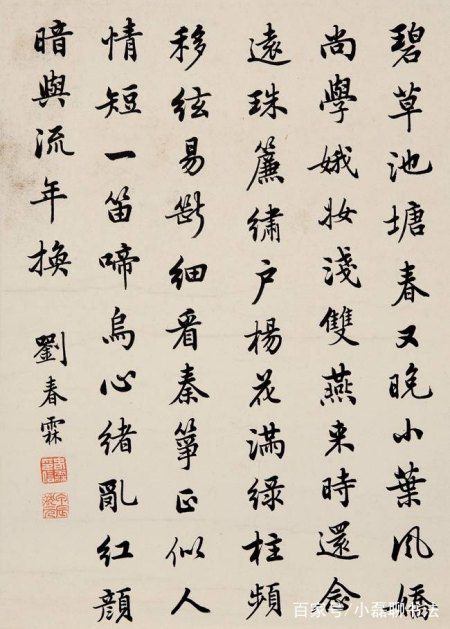 碧草池塘春又晚小葉風嬌
尚學娥妝淺雙燕来時還念
遠珠簾繡户楊花滿綠柱頻
移絃易斷細看秦箏正似人
情短一笛啼烏心緒亂紅顔
暗與流年換
劉春霖
百家号/小磊聊书法